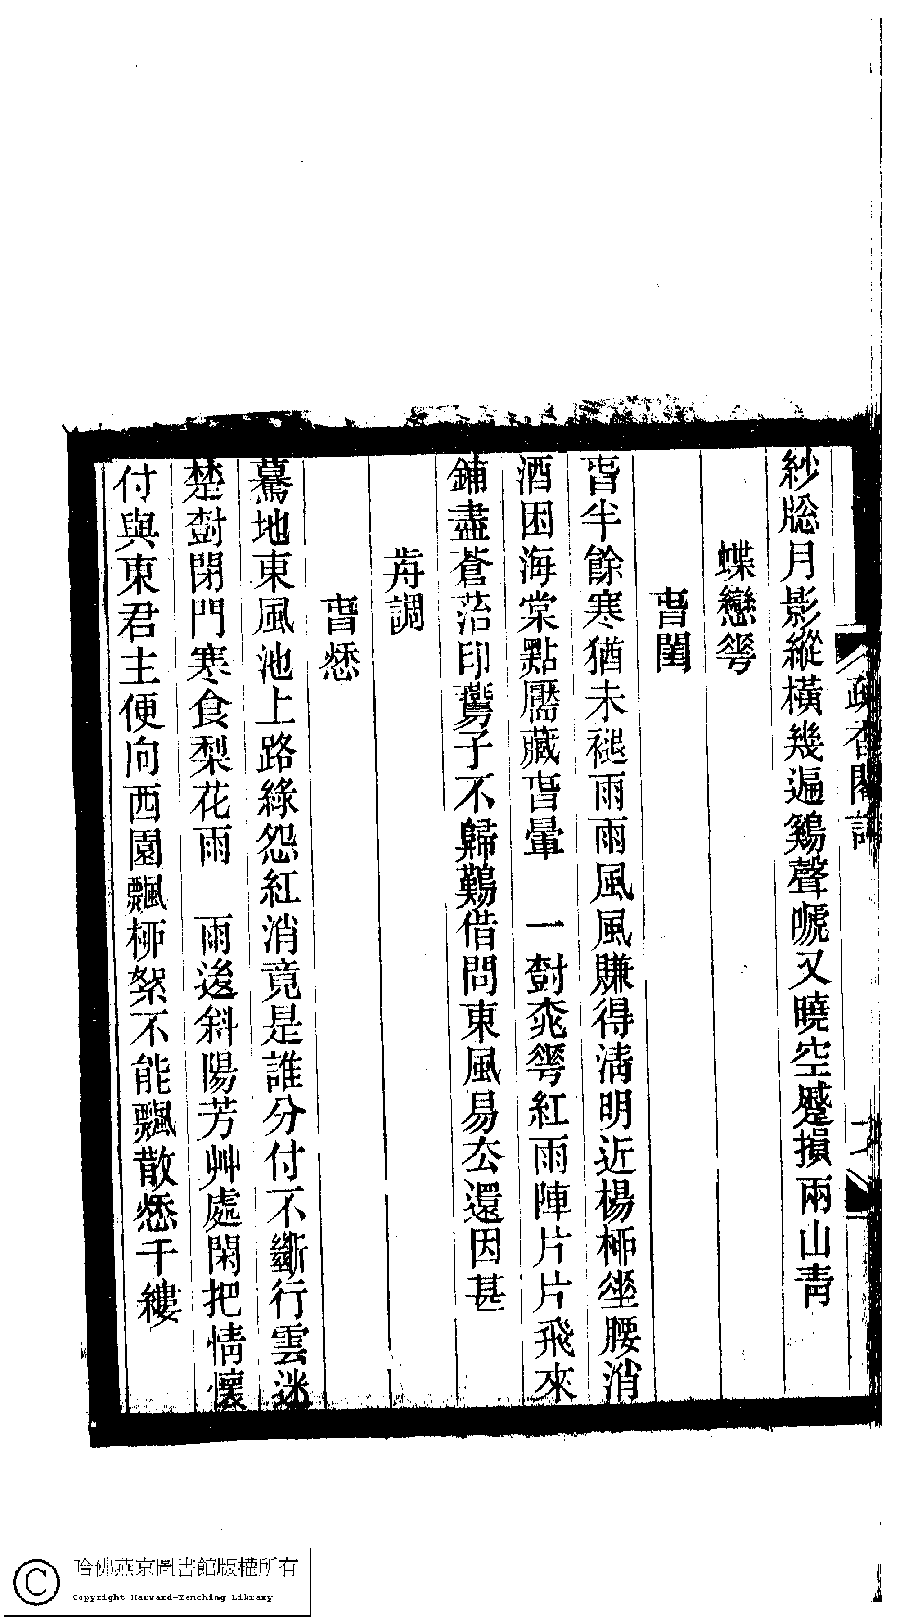 紗牕月影縱橫幾遍鷄聲噳又曉空蹙損兩山靑
蝶戀蕚
旾閨
旾半餘寒猶未褪雨雨風風賺得淸明近楊桺坐腰消
酒困海棠點靨藏旾暈　一尌桼蕚紅雨陣片片飛來
鋪盡蒼苔印鴦子不歸鷄借問東風易厺還因甚
歬調
旾愁
驀地東風池上路綠怨紅消竟是誰分付不斷行雲迷
楚尌閉門寒食梨花雨　雨後斜陽芳艸處閑把情懷
付與東君主便向西園飄桺絮不能飄散愁千縷
疏香閣詞
哈佛燕京圖書館版權所有
Copyright Harvard-Yenching Library